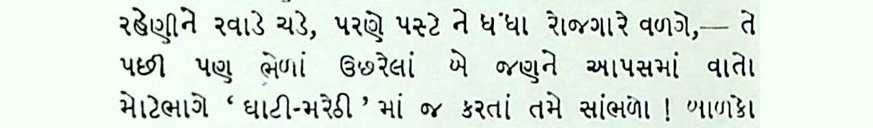 રહેણીને રવાડે ચડે, પરણે પસ્ટે ને ધંધા રોજગારે વળગે,— તે
પછી પણ ભેળાં ઉછરેલાં બે જણને આપસમાં વાતો
મોટેભાગે ‘ ઘાટી-મરેઠી ’ માં જ કરતાં તમે સાંભળો ! બાળકો